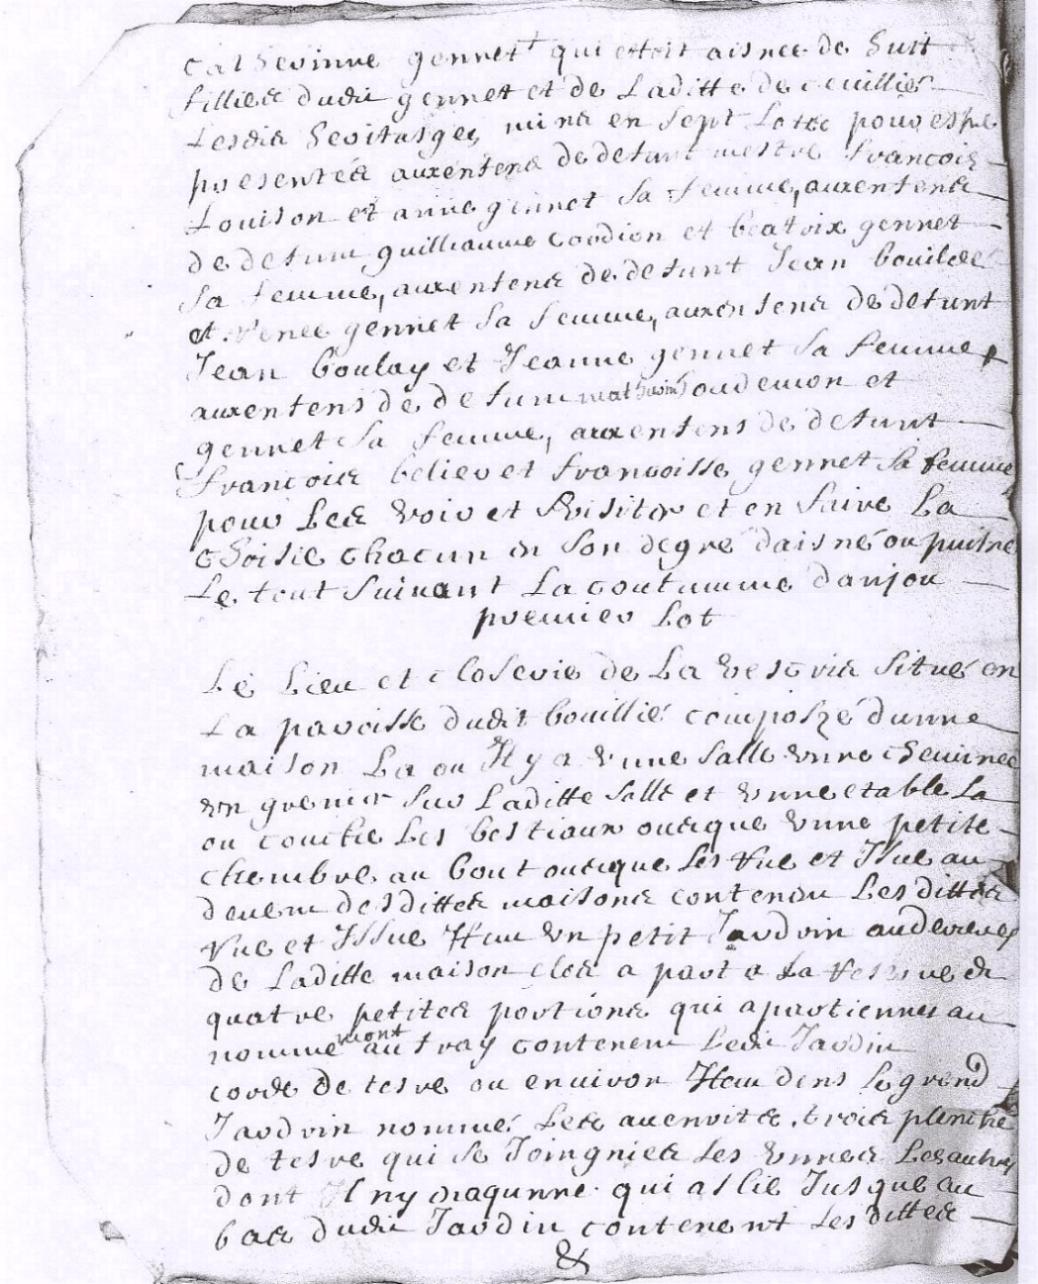 catherinne gennet qui estoit aisnee de huit
fillies dudit gennet et de Laditte de ceuillié
Lesdis heritasges mins en sept Lottes pour estre
presentés aux entens de defunt mestre francois
Louison et anne gennet sa femme, aux entens
de defunt guilliaume cordion et beatrix gennet
sa femme, aux entens de defunt Jean bouildé
et renee gennet sa femme, aux entens de defunt
Jean boulay et Jeanne gennet sa femme
aux entens de defunt mathurin houdemon et
gennet sa femme, aux entens de defunt
francois belier et francoisse gennet sa femme
pour Les voir et visiter et en faire La
choisie chacun en son degré daisné ou puisné
Le tout suivant La coutumme danjou
premier Lot
Le Lieu et closerie de La situé en
La paroisse dudit bouillié composzé dunne
maison La ou Il y a unne salle unne cheminee
un grenier sur Laditte salle et unne etable La
ou couche Les bestiaux avecque unne petite
chembre au bout avecque Les vue et Issue au
devem desdittes maisons contenen Les dittes
vue et Issue Item un petit Jardrin au derier
de Laditte maison clos a part a La reserve de
quatre petittes portions qui apartiennes au
nomme montautray contenem Ledit Jardin
corde de terre ou environ Item dens Le grend
Jardrin nommé Les trois plenche
de terre qui se Joingnies Les unnes Les autres
dont Il ny qui alsie Jusque au
bas dudit Jardin contenent Les dittes
&